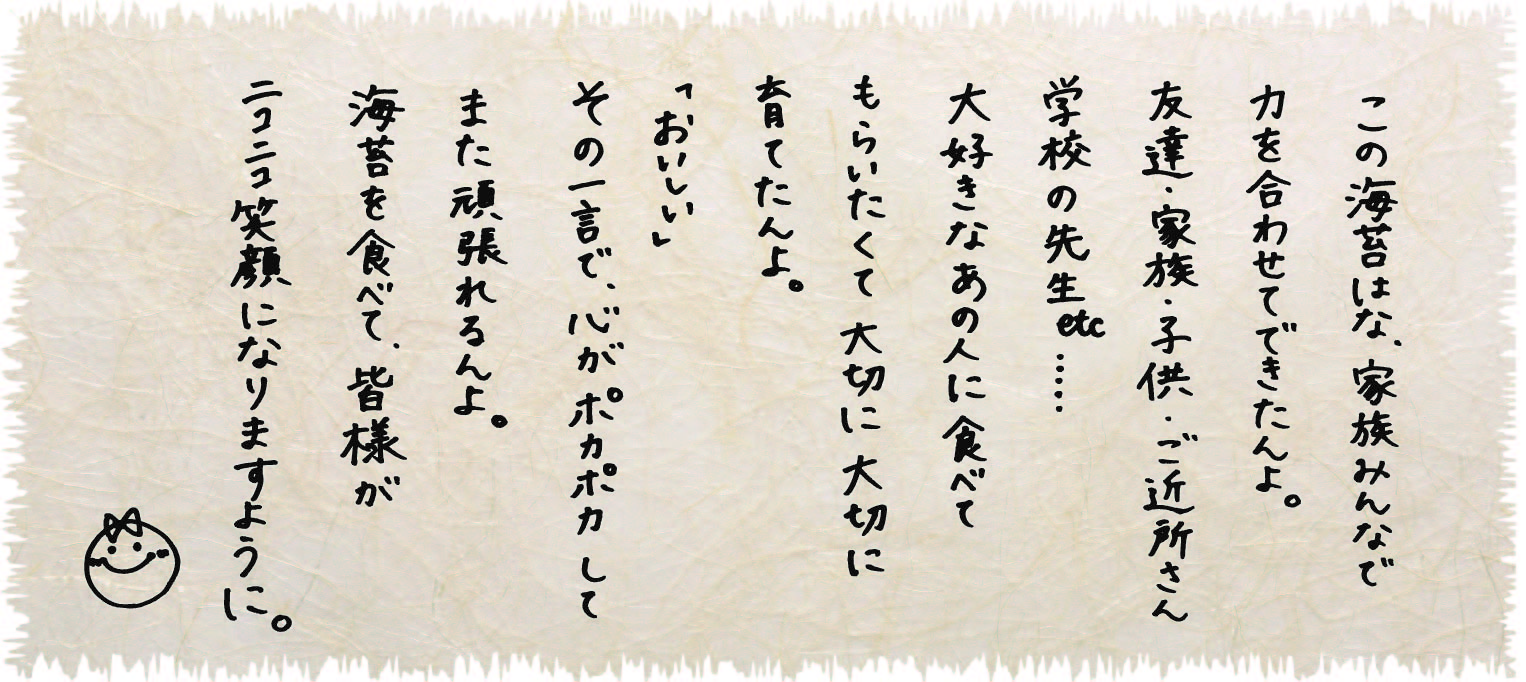 この海苔はな、家族みんなで
力を合わせてできたんよ。
友達・家族・子供・ご近所さん
学校の先生etc・・・・・
大好きなあの人に食べて
もらいたくて大切に大切に
育てたんよ。
「おいしい」
その一言で、心がポカポカして
また頑張れるんよ。
海苔を食べて、皆様が
ニコニコ笑顔になりますように。